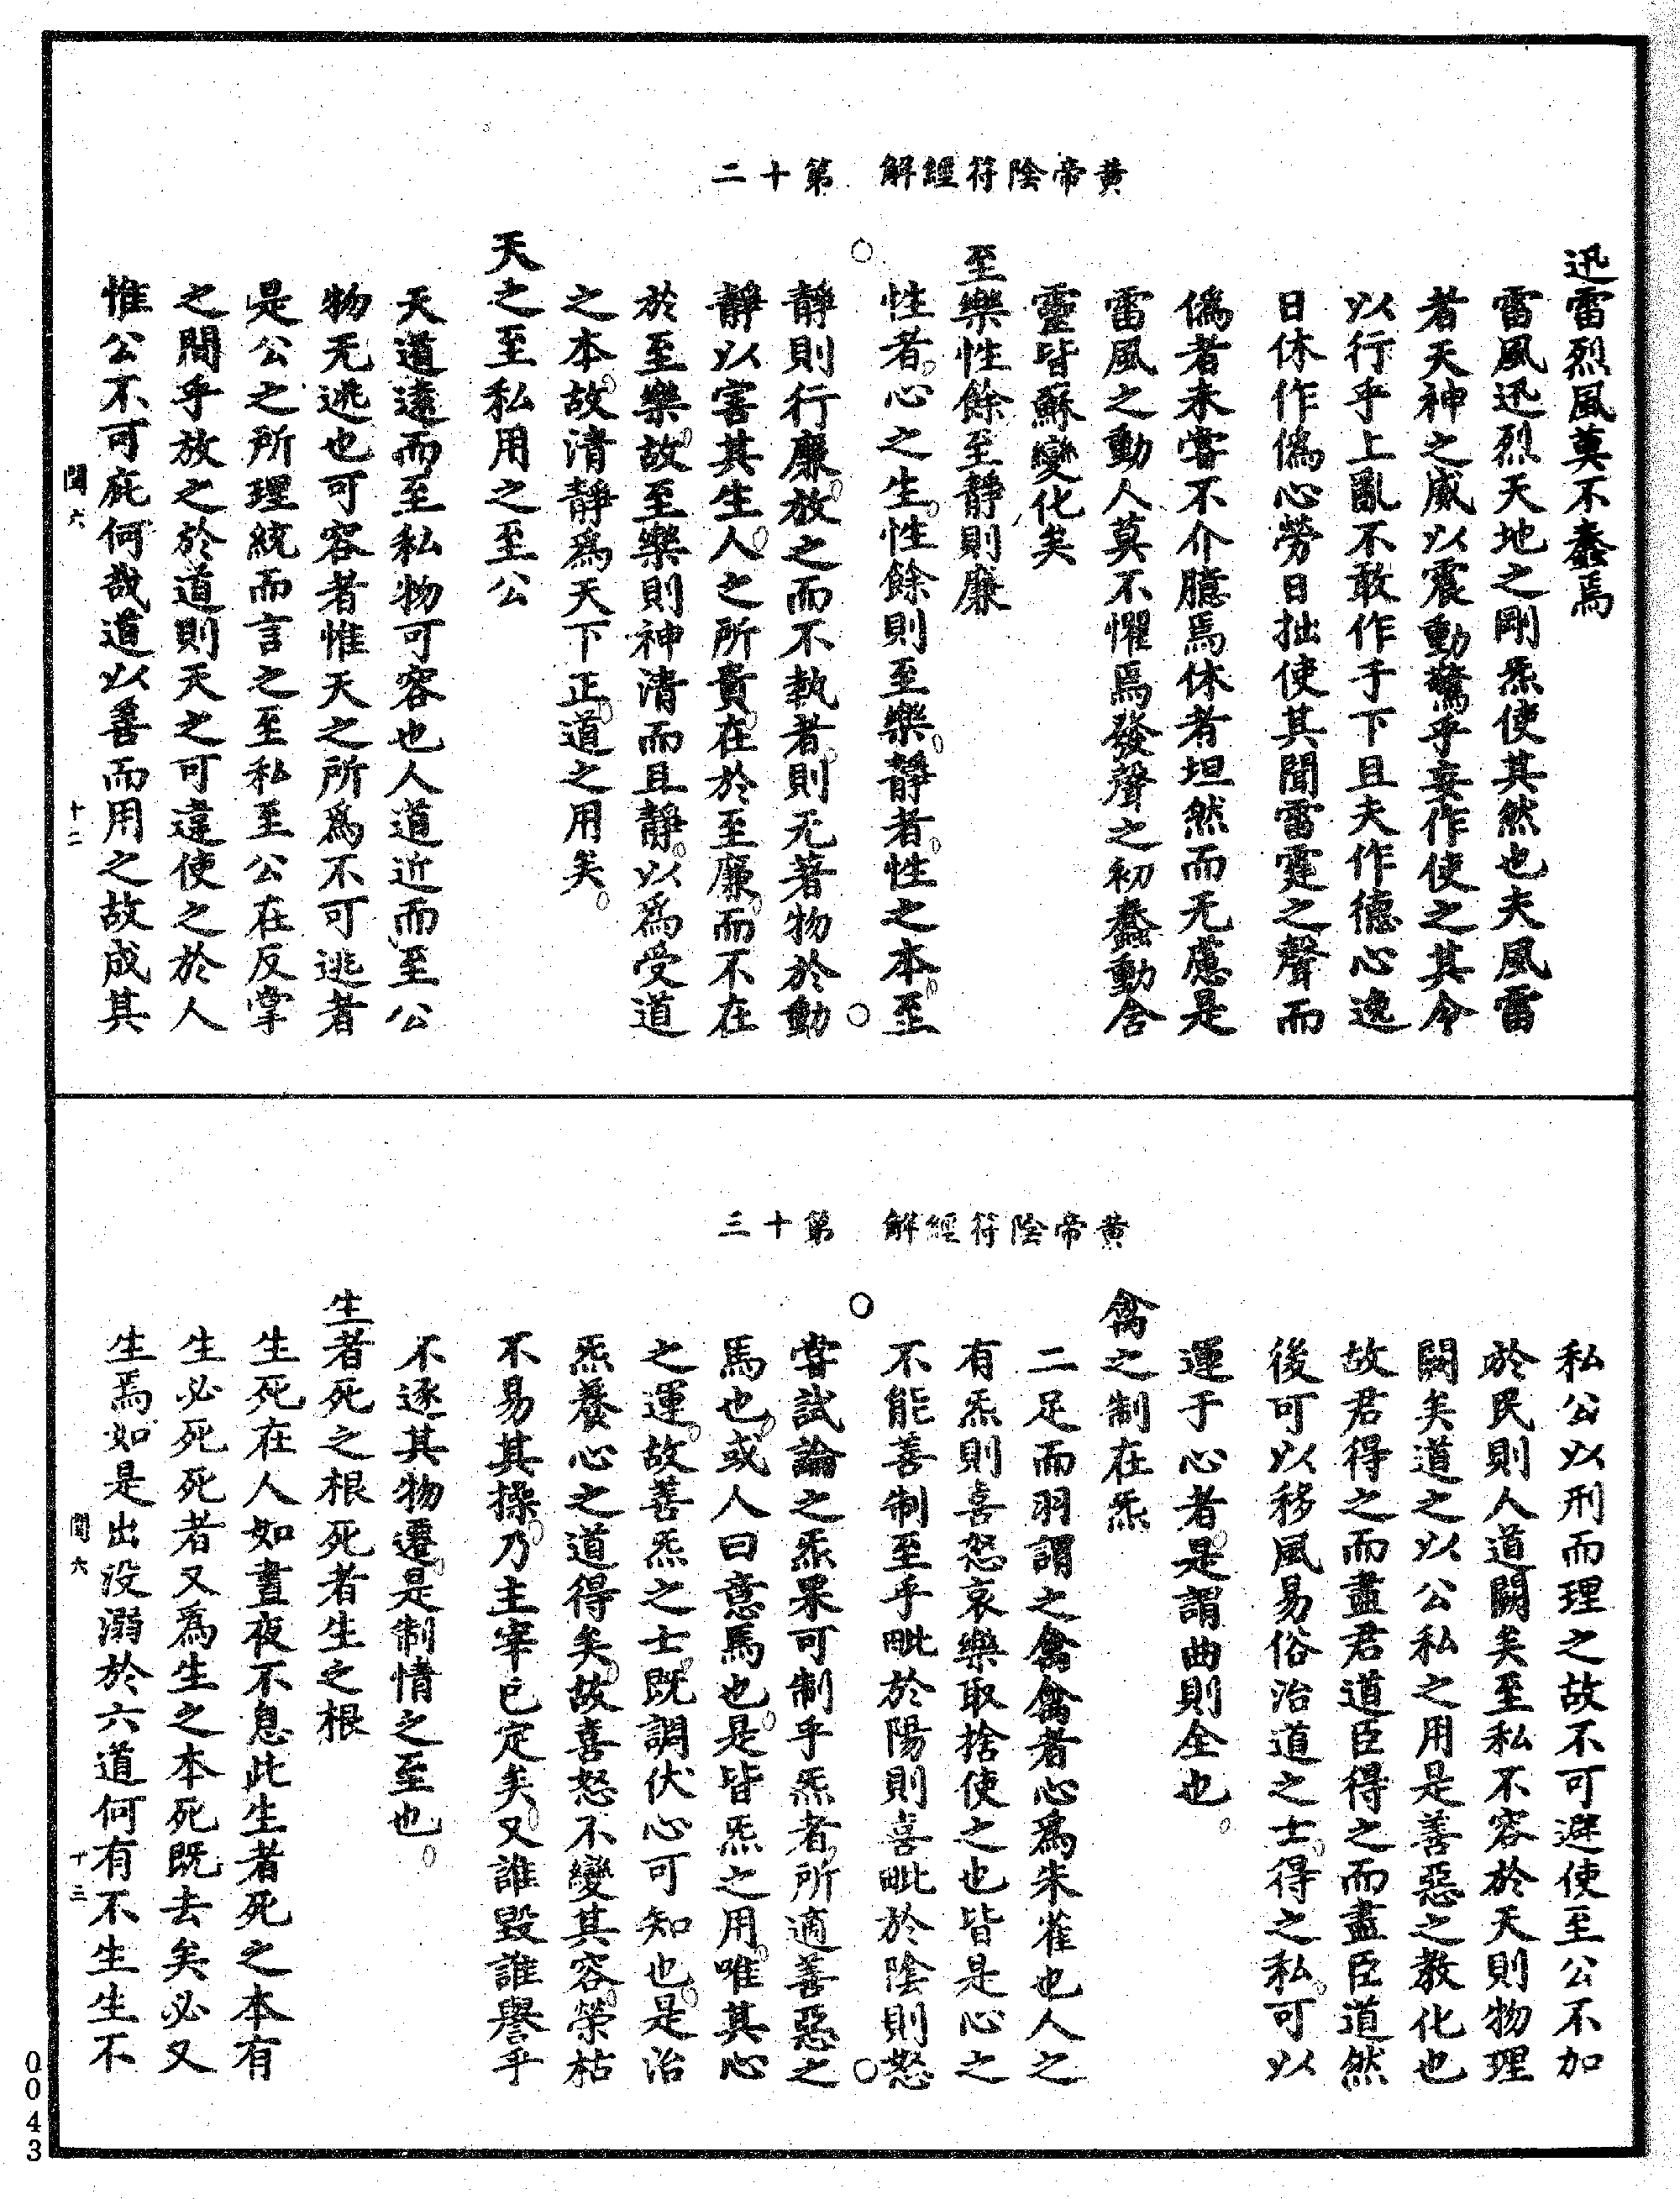 黃帝陰符經解　第十二
迅雷烈風莫不蠢焉
雷風迅烈天地之剛炁使其然也夫風雷
者天神之威以震動驚乎妄作使之其令
以行乎上亂不敢作于下且夫作德心逸
日休作僞心勞日拙使其聞雷霆之聲而
僞者未嘗不介臆焉休者坦然而无慮是
雷風之動人莫不懼焉發聲之初蠢動含
靈皆蘇變化矣
至樂性餘至靜則廉
性者心之生性餘則至樂靜者性之本至
靜則行廉放之而不執者則无著物於動
靜以害其生人之所貴在於至廉而不在
於至樂故至樂則神清而且靜以爲受道
之本故清靜爲天下正道之用矣
天之至私用之至公
天道遠而至私物可容也人道近而至公
物无逃也可容者惟天之所爲不可逃者
是公之所理統而言之至私至公在反掌
之間乎放之於道則天之可違使之於人
惟公不可庇何哉道以善而用之故成其
閏六
十二
黃帝陰符經解　第十三
私公以刑而理之故不可避使至公不加
於民則人道闕矣至私不容於天則物理
闕矣道之以公私之用是善惡之教化也
故君得之而盡君道臣得之而盡臣道然
後可以移風易俗治道之士得之私可以
運于心者是謂曲則全也
禽之制在炁
二足而羽謂之禽禽者心爲朱雀也人之
有炁則喜怒哀樂取捨使之也皆是心之
不能善制至乎毗於陽則喜毗於陰則怒
嘗試論之炁果可制乎炁者所適善惡之
馬也或人曰意馬也是皆炁之用唯其心
之運故善炁之士既調伏心可知也是治
炁養心之道得矣故喜怒不變其容榮枯
不易其操乃主宰已定矣又誰毀誰譽乎
不逐其物遷是制情之至也
生者死之根死者生之根
生死在人如晝夜不息此生者死之本有
生必死死者又爲生之本死既去矣必又
生焉如是出没溺於六道何有不生生不
閏六
十三
0043